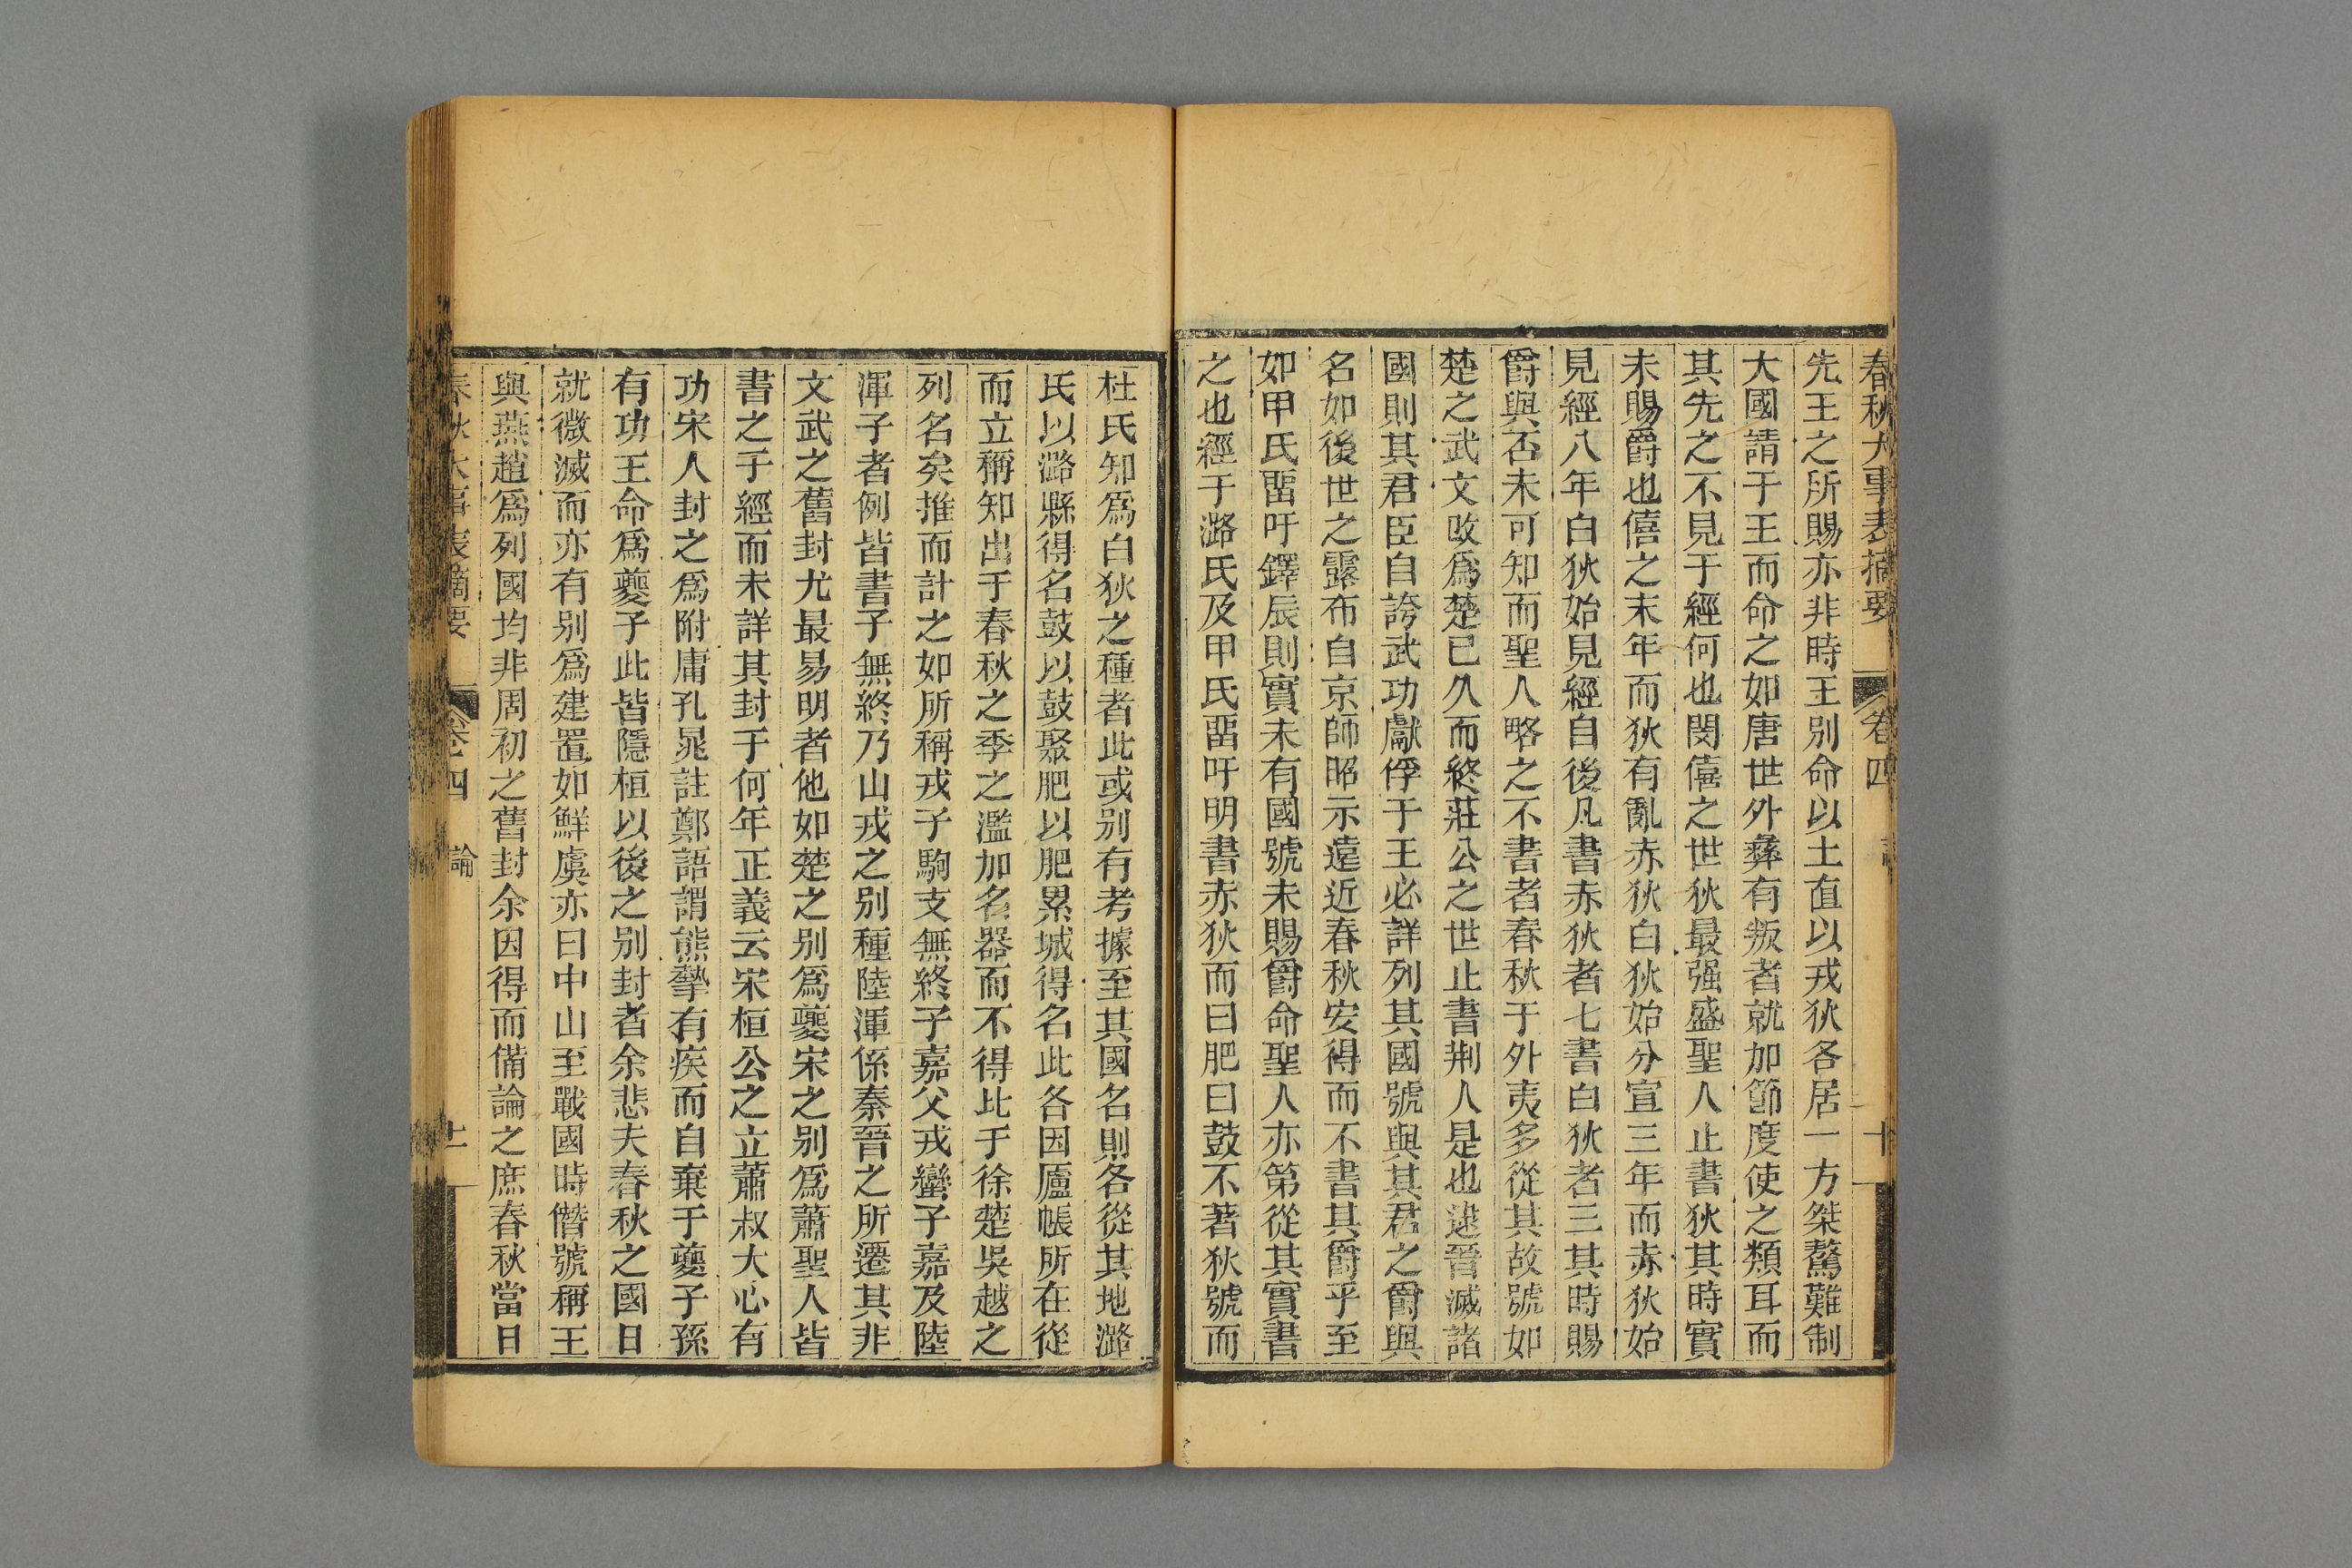 春秋大事表摘要 卷四 十
先王之所賜亦非時王別命以土直以戎狄各居一方桀驁難制
大國請于王而命之如唐世外彝有叛者就加節度使之類耳而
其先之不見于經何也閔僖之世狄最强盛聖人止書狄其時實
未賜爵也僖之末年而狄有亂赤狄白狄始分宣三年而赤狄始
見經八年白狄始見經自後凡書赤狄者七書白狄者三其時賜
爵與否未可知而聖人略之不書者春秋于外夷多從其故號如
楚之武文改爲楚已久而終莊公之世止書荆人是也逮晉滅諸
國則其君臣自誇武功獻俘于王必詳列其國號與其君之爵與
名如後世之露布自京師昭示遠近春秋安得而不書其爵乎至
如甲氏畱吁鐸辰則實未有國號未賜爵命聖人亦第從其實書
之也經于潞氏及甲氏畱吁明書赤狄而曰肥曰鼓不著狄號而
杜氏知爲白狄之種者此或別有考據至其國名則各從其地潞
氏以潞縣得名鼓以鼓聚肥以肥累城得名此各因廬帳所在從
而立稱知出于春秋之季之濫加名器而不得比于徐楚吳越之
列名矣推而計之如所稱戎子駒支無終子嘉父戎蠻子嘉及陸
渾子者例皆書子無終乃山戎之別種陸渾係秦晉之所遷其非
文武之舊封尤最易明者他如楚之別爲夔宋之別爲蕭聖人皆
書之于經而未詳其封于何年正義云宋桓公之立蕭叔大心有
功宋人封之爲附庸孔晁註鄭語謂熊摯有疾而自棄于夔子孫
有功王命爲夔子此皆隱桓以後之別封者余悲夫春秋之國日
就微滅而亦有別爲建置如鮮虞亦曰中山至戰國時僭號稱王
與燕趙爲列國均非周初之舊封余因得而備論之庶春秋當日
春秋大事表摘要 卷四 論 十一